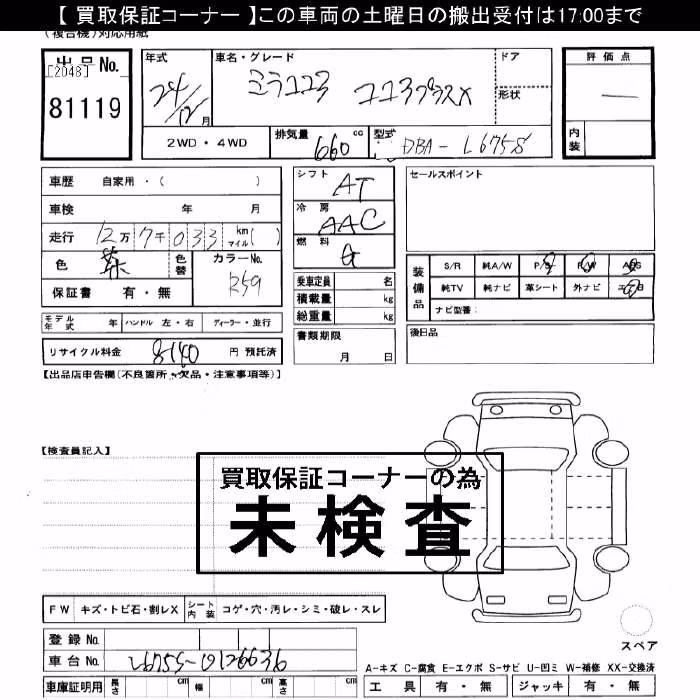 【 買取保証コーナー 】この車両の土曜日の搬出受付は17:00まで
(複合機)対応用紙
出品No.
[2048]
81119
年式
24/12月
車名・グレード
ミラココア ココアプラスX
ドア
形状
評価点
—
内装
2WD・4WD
排気量 660 cc
型式 DBA-L675S
車歴 自家用・( )
車検 年 月
走行 12万7千033 km マイル( )
色 茶
色替
カラーNo.
保証書 有・無
シフト AT
冷房 AAC
燃料 G
乗車定員 名
積載量 kg
総重量 kg
セールスポイント
装備品
S/R 純A/W P/S P/W ABS
純TV 純ナビ 革シート 外ナビ エアB
ナビ型番:
モデル年式 年 ハンドル 左・右 ディーラー・並行
リサイクル料金 8140 円 預託済
書類期限
月 日
後日品
【出品店申告欄(不良箇所・欠品・注意事項等)】
【検査員記入】
買取保証コーナーの為
未検査
FW キズ・トビ石・割レX シート内装 コゲ・穴・汚レ・シミ・破レ・スレ
登録No.
車台No. L675S-0126636
車庫証明用 長さ cm 幅 cm 高さ cm
スペア
A-キズ C-腐食 E-エクボ S-サビ U-凹ミ W-補修 XX-交換済
工具 有・無 ジャッキ 有・無